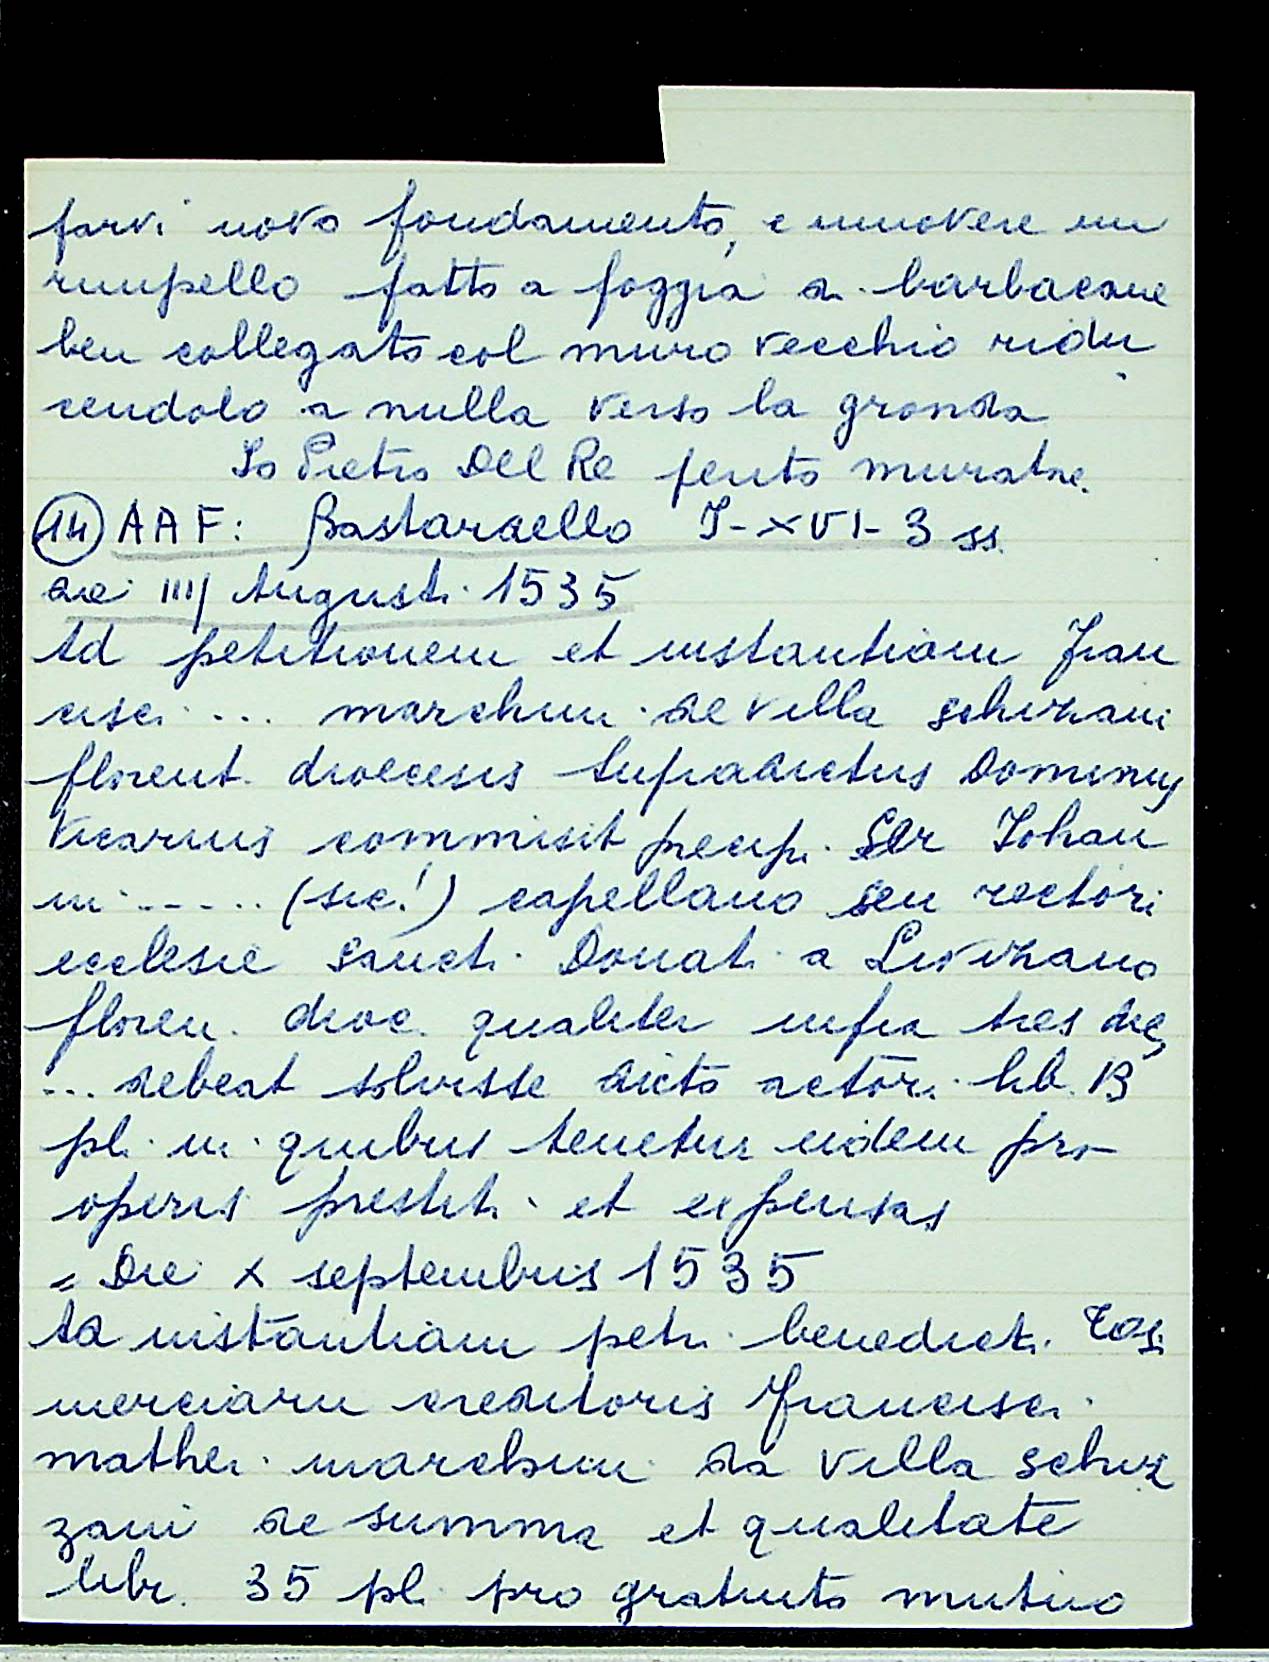 farvi novo fondamento, e muovere un
rimpello fatto a foggia di barbacane
ben collegato col muro vecchio ridu
cendolo a nulla verso la gronda
Io Pietro Del Re perito muratore.
(14) AAF: Bastardello I-XVI-3 ss.
die IIII Augusti 1535
Ad petitionem et instantiam Fran
cisci ... marchini de villa schizzani
florent. diocesis supradictus Dominus
Vicarius commisit precipi Ser Iohan
ni ..... (sic!) capellano seu rectori
ecclesie sancti Donati a Livizzano
floren. dioc. qualiter infra tres dies
... debeat solvisse dicto actori lib. 13
pl. in quibus tenetur eidem pro
operis prestiti et expensas
= Die X septembris 1535
Ad instantiam petri benedicti
merciarii creditoris Francisci
mathei marchini da villa schiz
zani de summa et qualitate
libr. 35 pl. pro gratuito mutuo